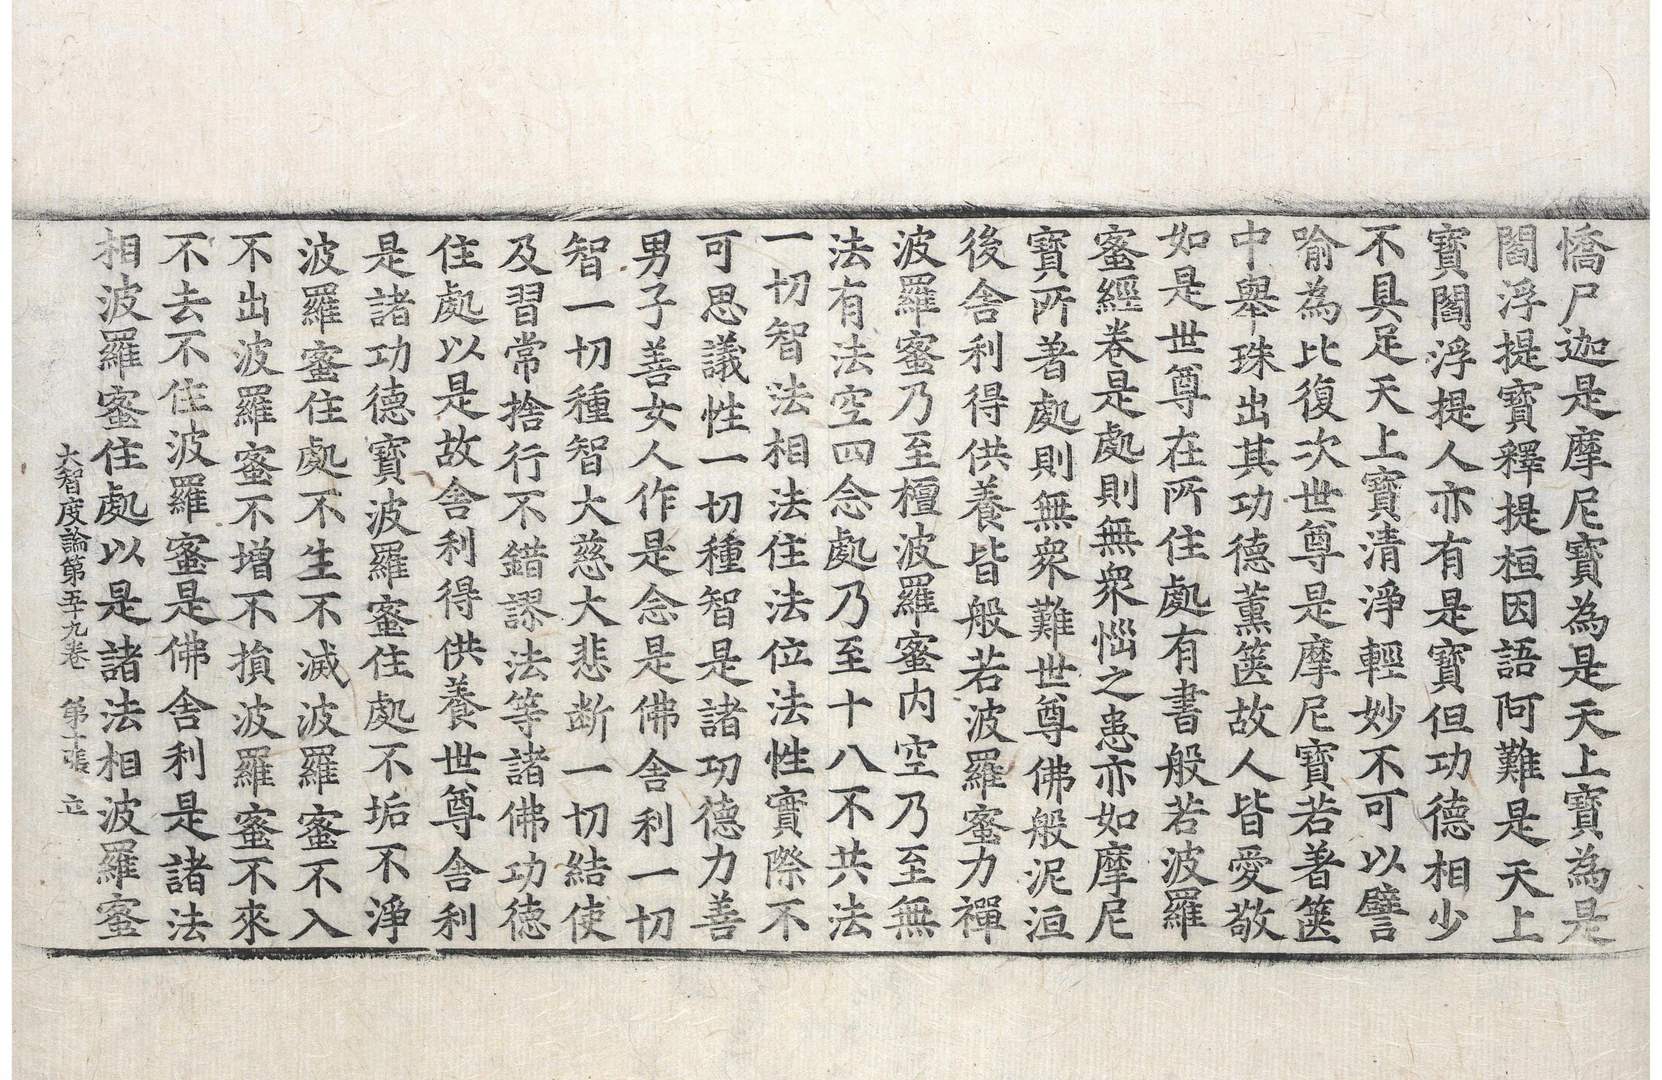 憍尸迦是摩尼寶為是天上寶為是
閻浮提寶釋提桓因語阿難是天上
寶閻浮提人亦有是寶但功德相少
不具足天上寶清淨輕妙不可以譬
喻為比復次世尊是摩尼寶若著篋
中舉珠出其功德薰篋故人皆愛敬
如是世尊在所住處有書般若波羅
蜜經卷是處則無衆惱之患亦如摩尼
寶所著處則無衆難世尊佛般泥洹
後舍利得供養皆般若波羅蜜力禪
波羅蜜乃至檀波羅蜜内空乃至無
法有法空四念處乃至十八不共法
一切智法相法住法位法性實際不
可思議性一切種智是諸功德力善
男子善女人作是念是佛舍利一切
智一切種智大慈大悲断一切結使
及習常捨行不錯謬法等諸佛功德
住處以是故舍利得供養世尊舍利
是諸功德寶波羅蜜住處不垢不淨
波羅蜜住處不生不滅波羅蜜不入
不出波羅蜜不增不損波羅蜜不來
不去不住波羅蜜是佛舍利是諸法
相波羅蜜住處以是諸法相波羅蜜
大智度論第五十九卷 第十張 立